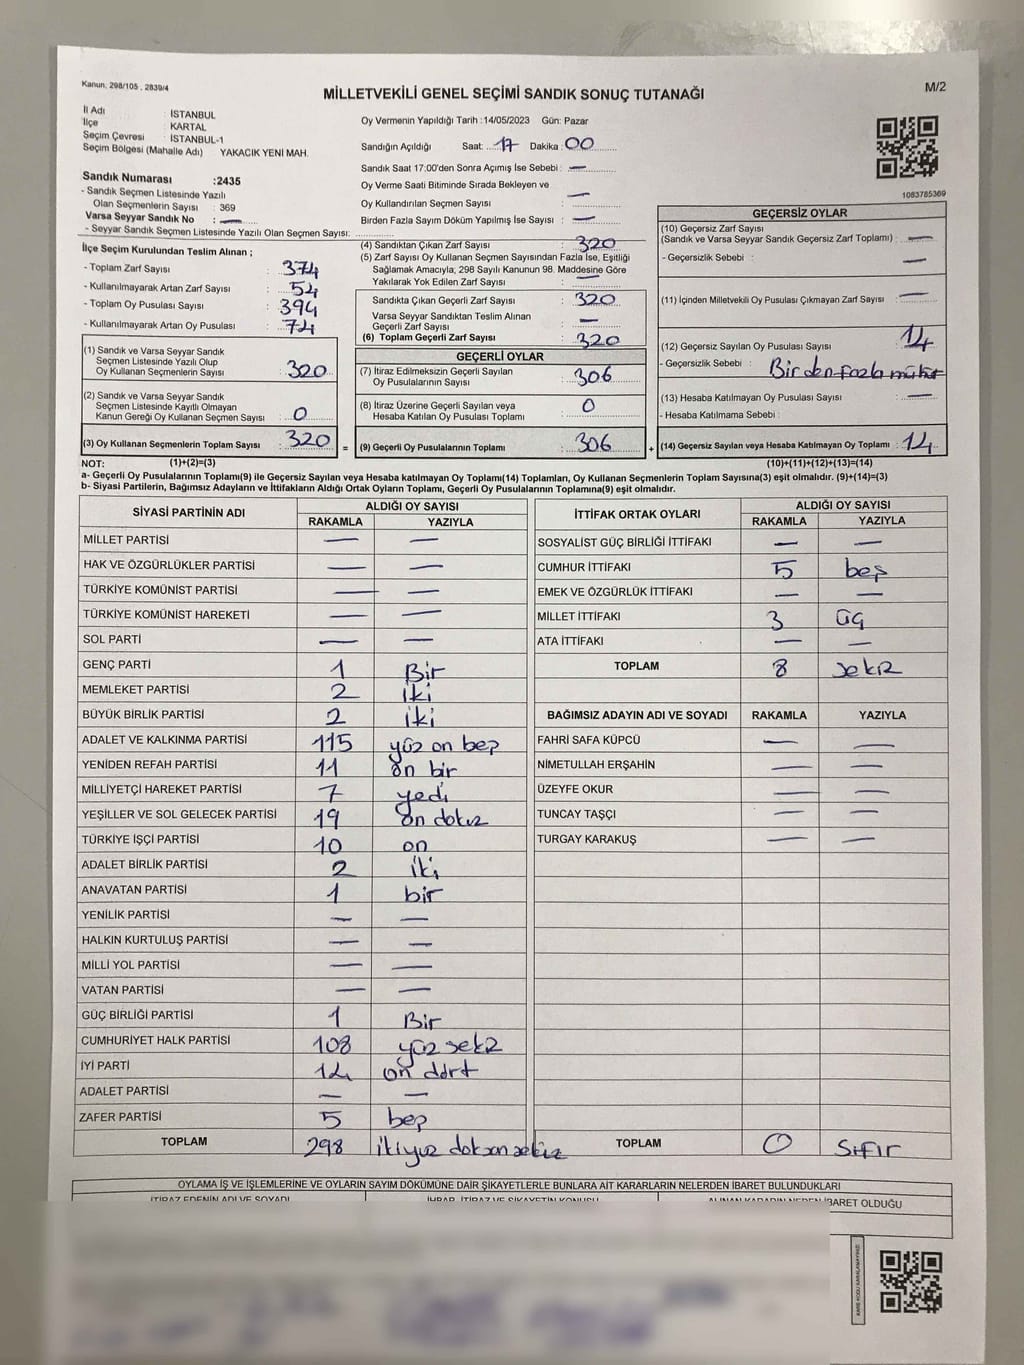 Kanun, 298/105 , 2839/4
MİLLETVEKİLİ GENEL SEÇİMİ SANDIK SONUÇ TUTANAĞI
M/2
İl Adı : İSTANBUL
İlçe : KARTAL
Seçim Çevresi : İSTANBUL-1
Seçim Bölgesi (Mahalle Adı) YAKACIK YENİ MAH.
Sandık Numarası :2435
- Sandık Seçmen Listesinde Yazılı
Olan Seçmenlerin Sayısı : 369
Varsa Seyyar Sandık No : —
- Seyyar Sandık Seçmen Listesinde Yazılı Olan Seçmen Sayısı:
İlçe Seçim Kurulundan Teslim Alınan ;
- Toplam Zarf Sayısı : 374
- Kullanılmayarak Artan Zarf Sayısı : 54
- Toplam Oy Pusulası Sayısı : 394
- Kullanılmayarak Artan Oy Pusulası : 74
(1) Sandık ve Varsa Seyyar Sandık
Seçmen Listesinde Yazılı Olup
Oy Kullanan Seçmenlerin Sayısı : 320
(2) Sandık ve Varsa Seyyar Sandık
Seçmen Listesinde Kayıtlı Olmayan
Kanun Gereği Oy Kullanan Seçmen Sayısı : 0
(3) Oy Kullanan Seçmenlerin Toplam Sayısı : 320 =
Oy Vermenin Yapıldığı Tarih :14/05/2023 Gün: Pazar
Sandığın Açıldığı Saat: 17 Dakika : 00
Sandık Saat 17:00'den Sonra Açımış İse Sebebi : —
Oy Verme Saati Bitiminde Sırada Bekleyen ve
Oy Kullandırılan Seçmen Sayısı : —
Birden Fazla Sayım Döküm Yapılmış İse Sayısı : —
(4) Sandıktan Çıkan Zarf Sayısı : 320
(5) Zarf Sayısı Oy Kullanan Seçmen Sayısından Fazla İse, Eşitliği
Sağlamak Amacıyla; 298 Sayılı Kanunun 98. Maddesine Göre
Yakılarak Yok Edilen Zarf Sayısı : —
Sandıkta Çıkan Geçerli Zarf Sayısı : 320
Varsa Seyyar Sandıktan Teslim Alınan
Geçerli Zarf Sayısı : —
(6) Toplam Geçerli Zarf Sayısı : 320
GEÇERLİ OYLAR
(7) İtiraz Edilmeksizin Geçerli Sayılan
Oy Pusulalarının Sayısı : 306
(8) İtiraz Üzerine Geçerli Sayılan veya
Hesaba Katılan Oy Pusulası Toplamı : 0
(9) Geçerli Oy Pusulalarının Toplamı : 306 +
1083785369
GEÇERSİZ OYLAR
(10) Geçersiz Zarf Sayısı
(Sandık ve Varsa Seyyar Sandık Geçersiz Zarf Toplamı) : —
- Geçersizlik Sebebi : —
(11) İçinden Milletvekili Oy Pusulası Çıkmayan Zarf Sayısı : —
(12) Geçersiz Sayılan Oy Pusulası Sayısı : 14
- Geçersizlik Sebebi : Birden fazla mühür
(13) Hesaba Katılmayan Oy Pusulası Sayısı : —
- Hesaba Katılmama Sebebi :
(14) Geçersiz Sayılan veya Hesaba Katılmayan Oy Toplamı : 14
NOT: (1)+(2)=(3) (10)+(11)+(12)+(13)=(14)
a- Geçerli Oy Pusulalarının Toplamı(9) ile Geçersiz Sayılan veya Hesaba katılmayan Oy Toplamı(14) Toplamları, Oy Kullanan Seçmenlerin Toplam Sayısına(3) eşit olmalıdır. (9)+(14)=(3)
b- Siyasi Partilerin, Bağımsız Adayların ve İttifakların Aldığı Ortak Oyların Toplamı, Geçerli Oy Pusulalarının Toplamına(9) eşit olmalıdır.
SİYASİ PARTİNİN ADI ALDIĞI OY SAYISI
RAKAMLA YAZIYLA
MİLLET PARTİSİ — —
HAK VE ÖZGÜRLÜKLER PARTİSİ — —
TÜRKİYE KOMÜNİST PARTİSİ — —
TÜRKİYE KOMÜNİST HAREKETİ — —
SOL PARTİ — —
GENÇ PARTİ 1 Bir
MEMLEKET PARTİSİ 2 iki
BÜYÜK BİRLİK PARTİSİ 2 iki
ADALET VE KALKINMA PARTİSİ 115 yüz on beş
YENİDEN REFAH PARTİSİ 11 on bir
MİLLİYETÇİ HAREKET PARTİSİ 7 yedi
YEŞİLLER VE SOL GELECEK PARTİSİ 19 on dokuz
TÜRKİYE İŞÇİ PARTİSİ 10 on
ADALET BİRLİK PARTİSİ 2 iki
ANAVATAN PARTİSİ 1 bir
YENİLİK PARTİSİ — —
HALKIN KURTULUŞ PARTİSİ — —
MİLLİ YOL PARTİSİ — —
VATAN PARTİSİ — —
GÜÇ BİRLİĞİ PARTİSİ 1 Bir
CUMHURİYET HALK PARTİSİ 108 yüz sekiz
İYİ PARTİ 14 on dört
ADALET PARTİSİ — —
ZAFER PARTİSİ 5 beş
TOPLAM 298 ikiyüz doksan sekiz
İTTİFAK ORTAK OYLARI ALDIĞI OY SAYISI
RAKAMLA YAZIYLA
SOSYALİST GÜÇ BİRLİĞİ İTTİFAKI — —
CUMHUR İTTİFAKI 5 beş
EMEK VE ÖZGÜRLÜK İTTİFAKI — —
MİLLET İTTİFAKI 3 üç
ATA İTTİFAKI — —
TOPLAM 8 sekiz
BAĞIMSIZ ADAYIN ADI VE SOYADI RAKAMLA YAZIYLA
FAHRİ SAFA KÜPCÜ — —
NİMETULLAH ERŞAHİN — —
ÜZEYFE OKUR — —
TUNCAY TAŞÇI — —
TURGAY KARAKUŞ — —
TOPLAM 0 Sıfır
OYLAMA İŞ VE İŞLEMLERİNE VE OYLARIN SAYIM DÖKÜMÜNE DAİR ŞİKAYETLERLE BUNLARA AİT KARARLARIN NELERDEN İBARET BULUNDUKLARI
İTİRAZ EDENİN ADI VE SOYADI İHBAR, İTİRAZ VE ŞİKAYETİN KONUSU ALINAN KARARIN NEDEN İBARET OLDUĞU